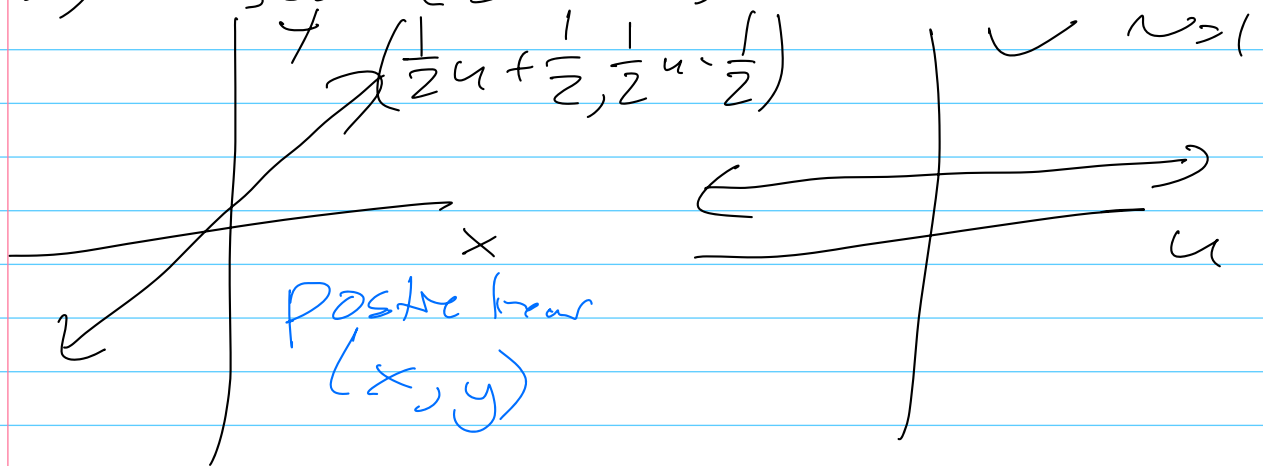 y (1/2 u + 1/2, 1/2 u - 1/2)
v v=1
x
u
postive linear
(x, y)